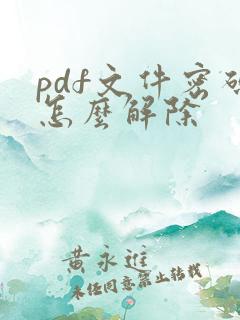 pdf文件密码
怎麼解除
黄永進
未经同意禁止转载